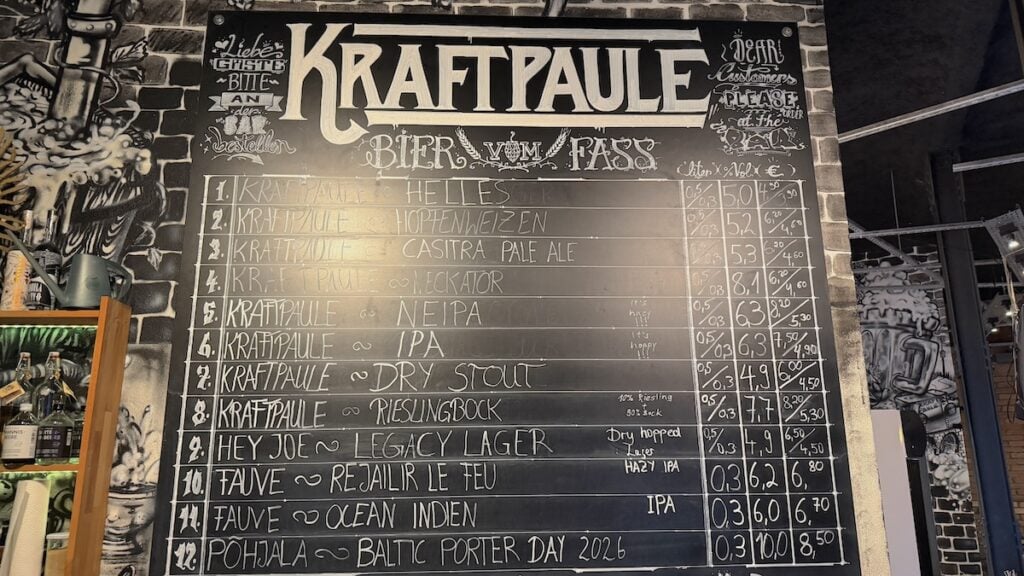 Liebe
Gäste
BITTE
AN
der
BAR
bestellen
KRAFTPAULE
DEAR
Customers
PLEASE
ORDER
at the
BIER VOM FASS
(liter x %vol x €)
1. KRAFTPAULE ~ HELLES 0,5/0,3 5,0
2. KRAFTPAULE ~ HOPFENWEIZEN 0,5/0,3 5,2
3. KRAFTPAULE ~ CASITRA PALE ALE 0,5/0,3 5,3 4,60
4. KRAFTPAULE ~ NECKATOR 0,5/0,3 8,1
5. KRAFTPAULE ~ NEIPA 0,5/0,3 6,3 8,20/5,30
6. KRAFTPAULE ~ IPA hoppy 0,5/0,3 6,3 7,50/4,90
7. KRAFTPAULE ~ DRY STOUT 0,5/0,3 4,9 6,00/4,50
8. KRAFTPAULE ~ RIESLINGBOCK 10% Riesling 90% Bock 0,5/0,3 7,7 8,20/5,30
9. HEY JOE ~ LEGACY LAGER Dry hopped Lager 0,5/0,3 4,9 6,50/4,50
10. FAUVE ~ REJAILIR LE FEU HAZY IPA 0,3 6,2 6,80
11. FAUVE ~ OCEAN INDIEN IPA 0,3 6,0 6,70
12. PÕHJALA ~ BALTIC PORTER DAY 2026 0,3 10,0 8,50